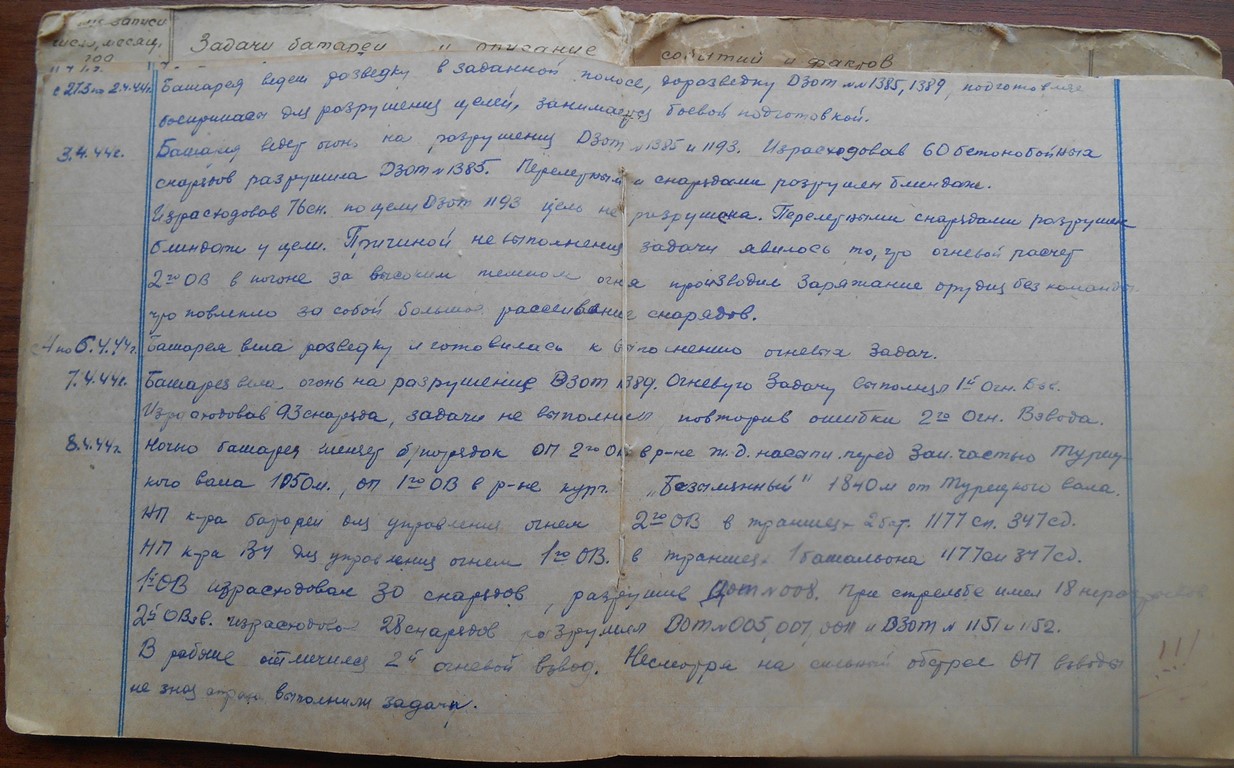 записи
число, месяц,
Задачи батареи и описание событий и фактов
с 27.3 по 2.4.44г. Батарея ведет розведку в заданной полосе, доразведку Дзот №№1385, 1389, подготовляе
боеприпасы для разрушения целей, занимается боевой подготовкой.
3.4.44г. Батарея ведет огонь на разрушения Дзот №1385 и 1193. Израсходовав 60 бетонобойных
снарядов разрушила Дзот №1385. Перелетными снарядами розрушен блиндаж.
Израсходовав 76 сн. по цели Дзот 1193 цель не разрушена. Перелетными снарядами разрушен
блиндаж у цели. Причиной не выполнения задачи явилось то, что огневый расчет
2го ОВ в погоне за высоким темпом огня производил заряжание орудия без команды
что повлекло за собой большое рассеивание снарядов.
с 4 по 6.4.44г. Батарея вела розведку и готовилась к выполнению огневых задач.
7.4.44г. Батарея вела огонь на разрушение ДЗот 1389. Огневую задачу выполнял 1й Огн. Взв.
Израсходовав 93 снаряда, задачи не выполнил, повторив ошибки 2го Огн. Взвода.
8.4.44г. Ночью батарея меняет б/порядок ОП 2го ОВ в р-не ж.д. насыпи перед Зап. частью Турец-
кого вала 1050м., оп 1го ОВ в р-не кург. "Безымянный" 1840м от Турецкого вала.
НП к-ра батареи для управления огнем 2го ОВ в траншеях 2 бат. 1177 сп. 347 сд.
НП к-ра ВУ для управления огнем 1го ОВ. в траншеях 1 батальона 1177 сп 347 сд.
1й ОВ израсходовал 30 снарядов, разрушив Дот №008. При стрельбе имел 18
2й ОВзв. израсходовав 28 снарядов розрушил Дот №005, 007, и ДЗот № 1151 и 1152.
В работе отличился 2й огневой взвод. Несмотря на сильный обстрел ОП взводы
не зная страха выполнили задачи.
!!!